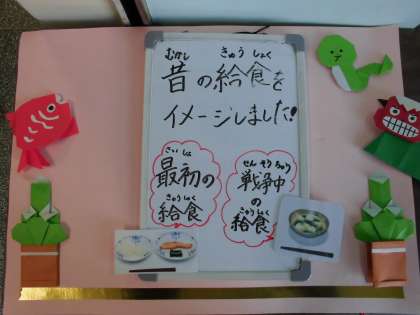 むかし きゅう しょく
昔の給食を
イメージしました!
さい しょ
最初の
きゅうしょく
給食
せん そう ちゅう
戦争中
の
きゅうしょく
給食